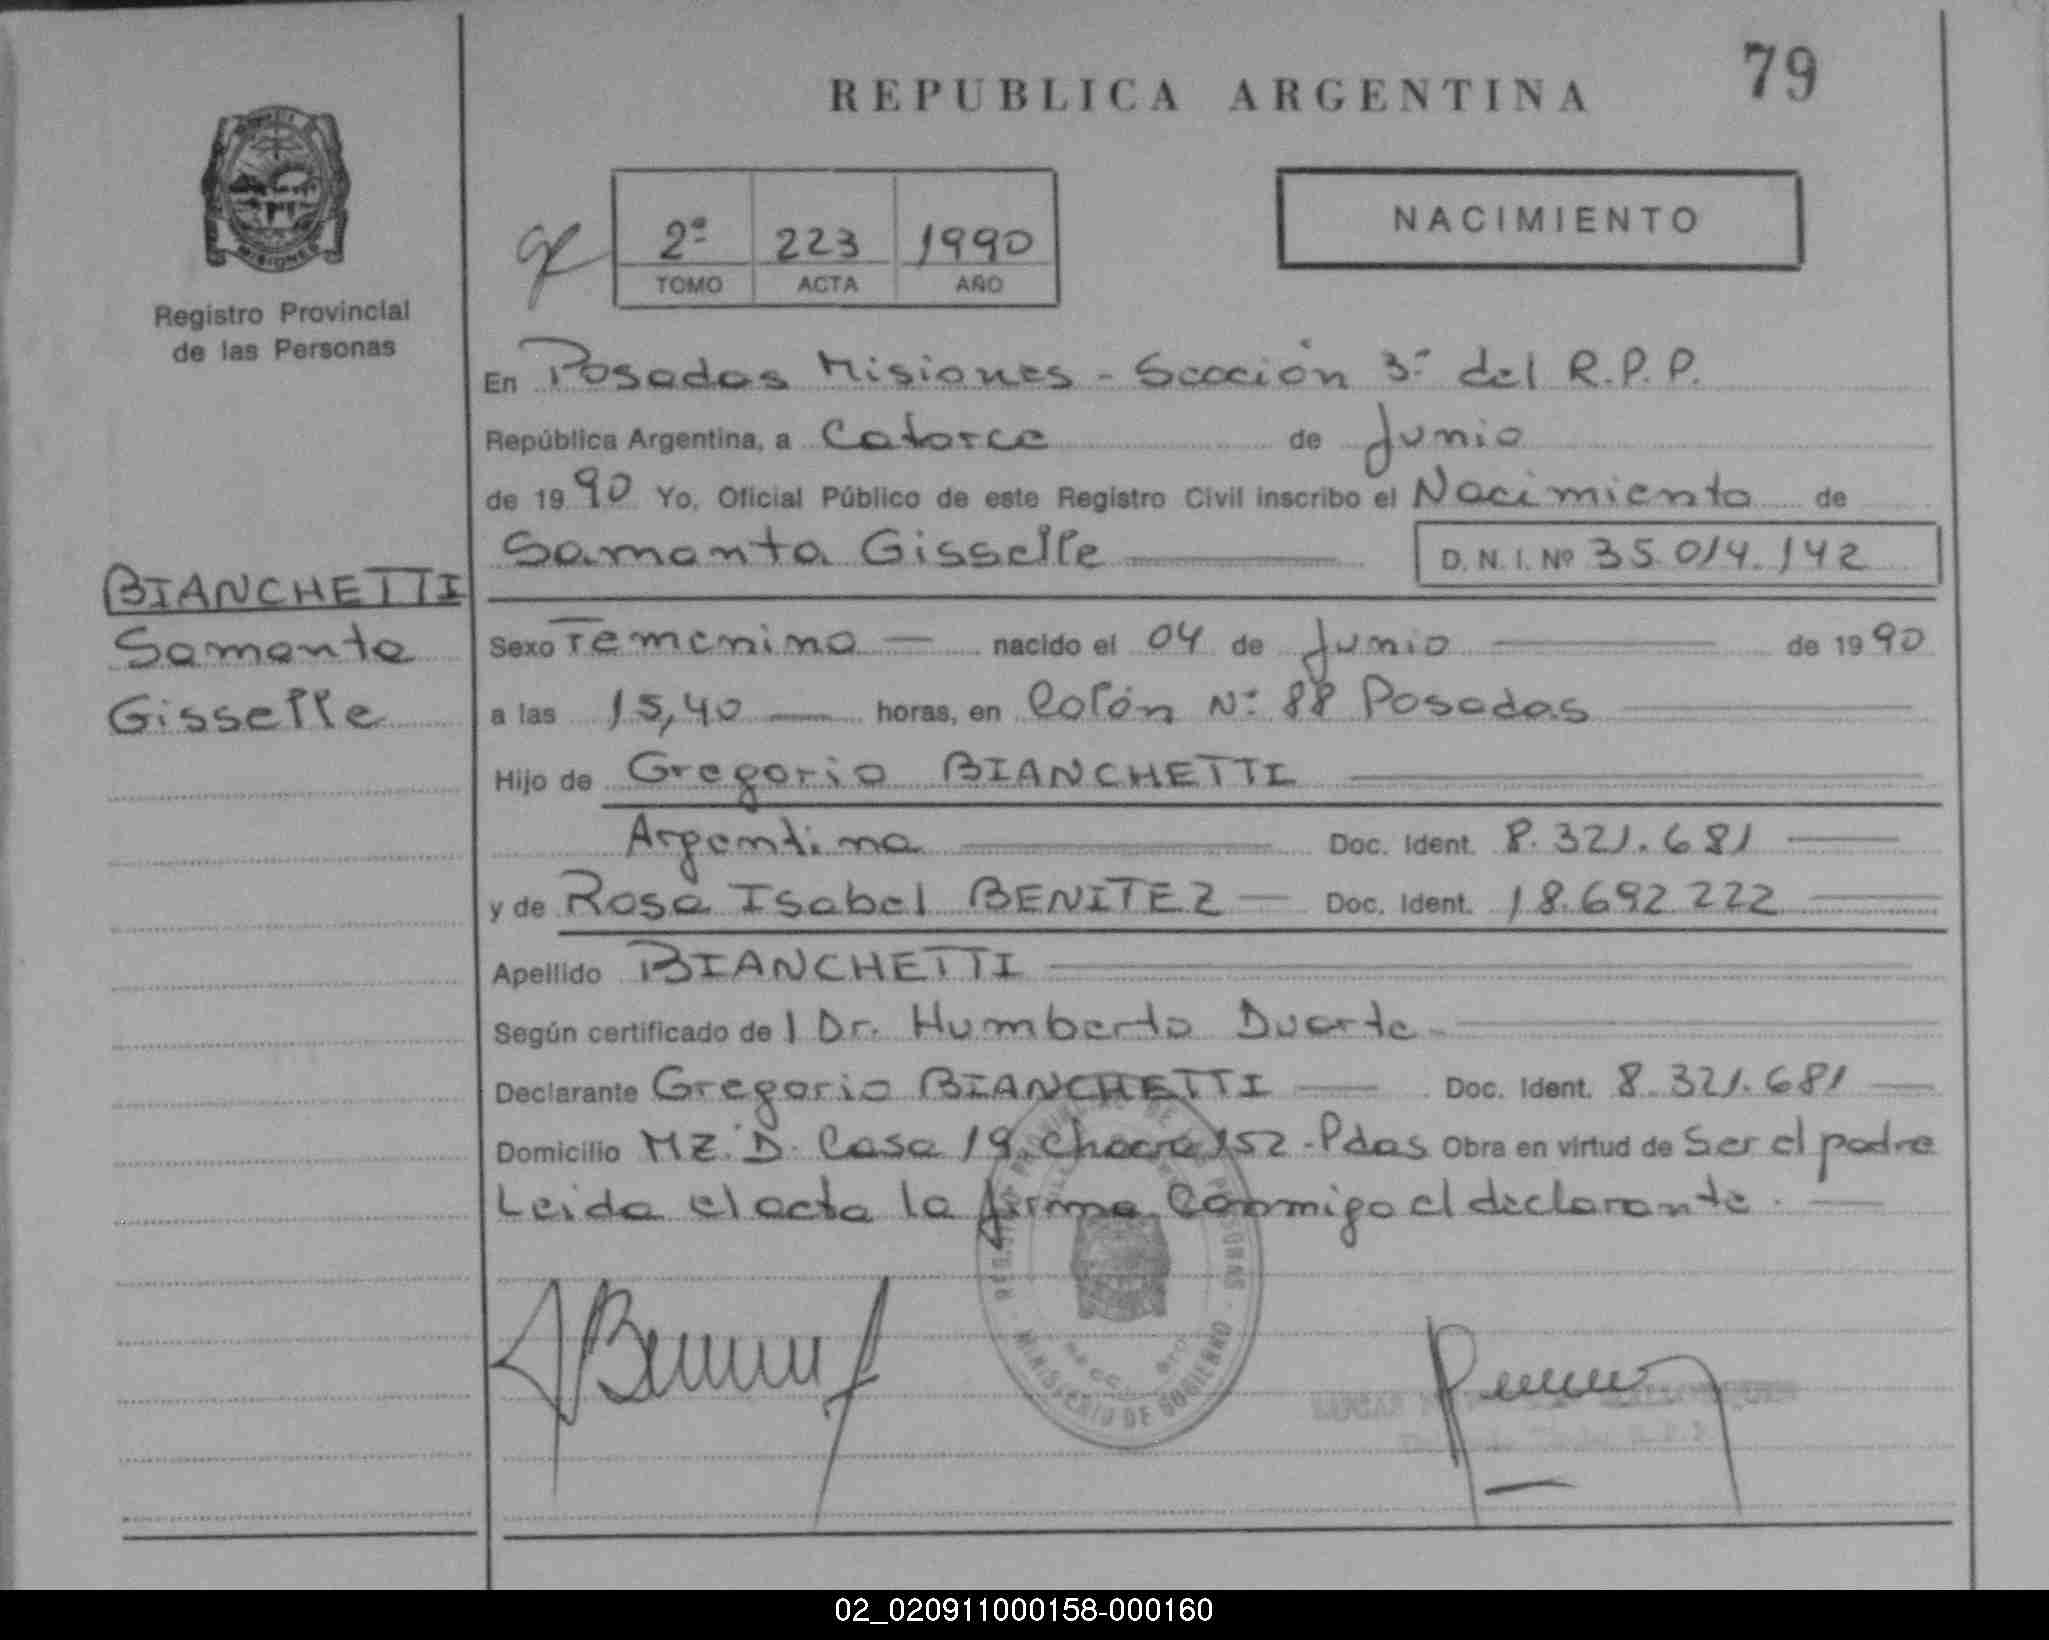 REPUBLICA ARGENTINA
79
2ª 223 1990
TOMO ACTA AÑO
NACIMIENTO
MISIONES
Registro Provincial
de las Personas
En Posadas Misiones - Sección 3ª del R.P.P.
República Argentina, a Catorce de Junio
de 1990 Yo, Oficial Público de este Registro Civil inscribo el Nacimiento de
Samanta Gisselle D.N.I. Nº 35.014.142
BIANCHETTI
Samanta
Gisselle
Sexo Femenino nacido el 04 de Junio de 1990
a las 15,40 horas, en Colón Nº 88 Posadas
Hijo de Gregorio BIANCHETTI
Argentina Doc. Ident. 8.321.681
y de Rosa Isabel BENITEZ Doc. Ident. 18.692.222
Apellido BIANCHETTI
Según certificado de l Dr. Humberto Duarte
Declarante Gregorio BIANCHETTI Doc. Ident. 8.321.681
Domicilio MZ. D. Casa 19. Chacra 152 - Pdas Obra en virtud de Ser el padre
Leida el acta la firma Conmigo el declarante.
REGISTRO PROVINCIAL DE LAS PERSONAS
MINISTERIO DE GOBIERNO
LUCAS
02_020911000158-000160